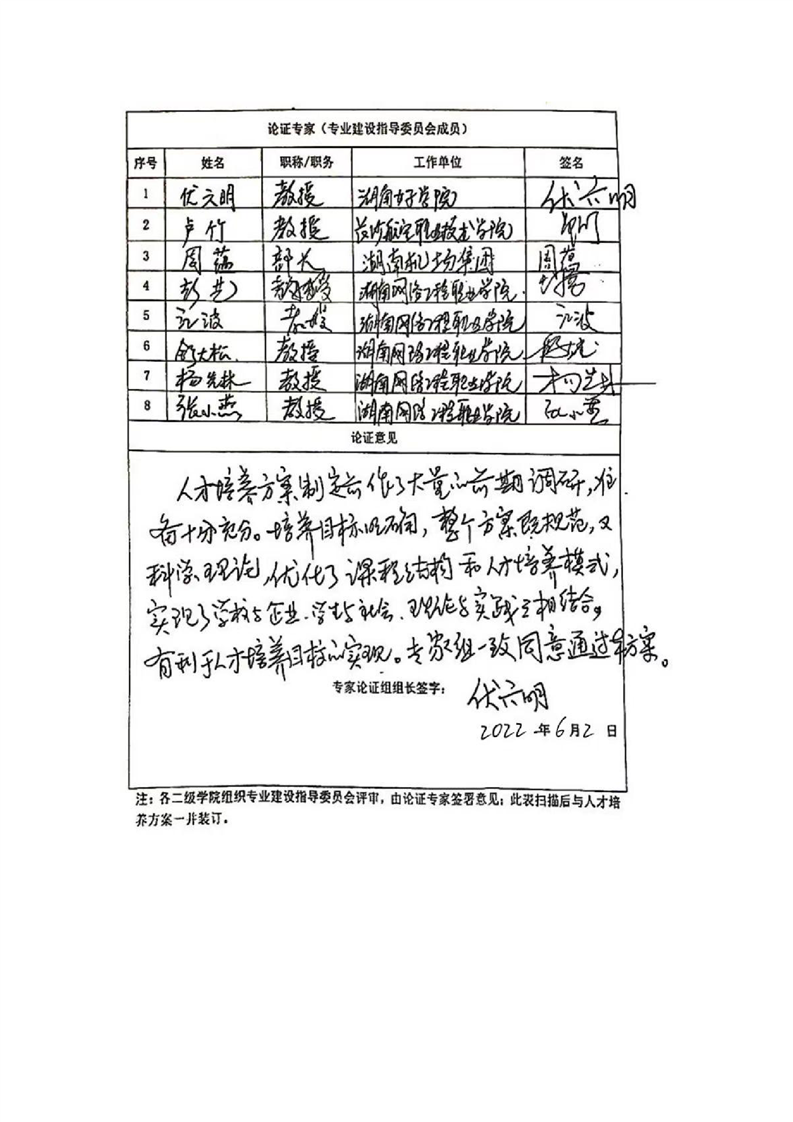 论证专家（专业建设指导委员会成员）
序号 姓名 职称/职务 工作单位 签名
1 伏六明 教授 湖南女子学院 伏六明
2 卢竹 教授 长沙航空职业技术学院
3 周蕩 部长 湖南机场集团
4 彭 湖南网络工程职业学院
5 波 湖南网络工程职业学院 波
6 大松 教授 湖南网络工程职业学院
7 杨先林 教授 湖南网络工程职业学院
8 张小燕 教授 湖南网络工程职业学院 张小燕
论证意见
人才培养方案制定前作了大量的前期调研，准
备十分充分。培养目标明确，整个方案既规范，又
科学理论，优化了课程结构和人才培养模式，
实现了学校与企业、学生与社会、理论与实践互相结合，
有利于人才培养目标的实现。专家组一致同意通过本方案。
专家论证组组长签字：
伏六明
2022 年 6 月 2 日
注：各二级学院组织专业建设指导委员会评审，由论证专家签署意见；此表扫描后与人才培
养方案一并装订。